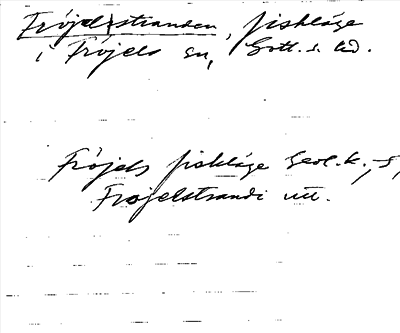 Fröjelstranden, fiskläge
i Fröjels sn, Gotl. s. hd.
Fröjels fiskläge Geol. k.,
Fröjelstrandi utt.